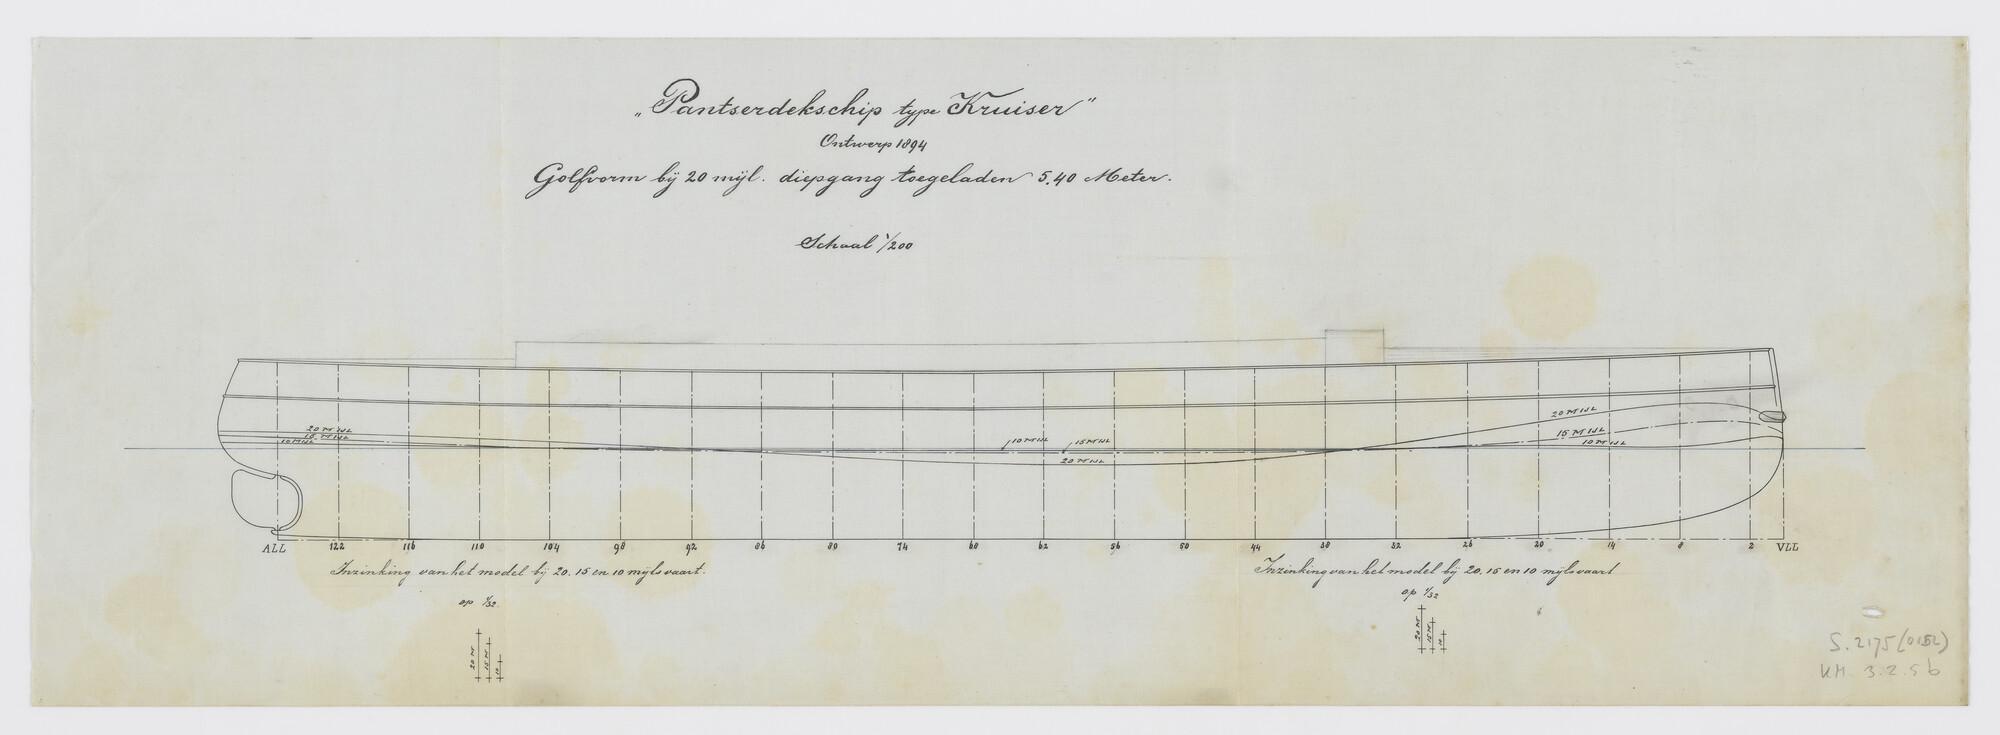 „Pantserdekschip type Kruiser”
Ontwerp 1894
Golfvorm bij 20 mijl. diepgang toegeladen 5.40 Meter.
Schaal 1/200
20 MIJL
15 MIJL
10 MIJL
10 MIJL 15 MIJL
20 MIJL
20 MIJL
15 MIJL
10 MIJL
ALL 122 116 110 104 98 92 86 80 74 68 62 56 50 44 38 32 26 20 14 8 2 VLL
Inzinking van het model bij 20. 15 en 10 mijls vaart.
op 1/32
20 M
15 M
10
Inzinking van het model bij 20. 15 en 10 mijls vaart
op 1/32
20 M
15 M
10
S. 2175 (0152)
KM. 3.2.5b